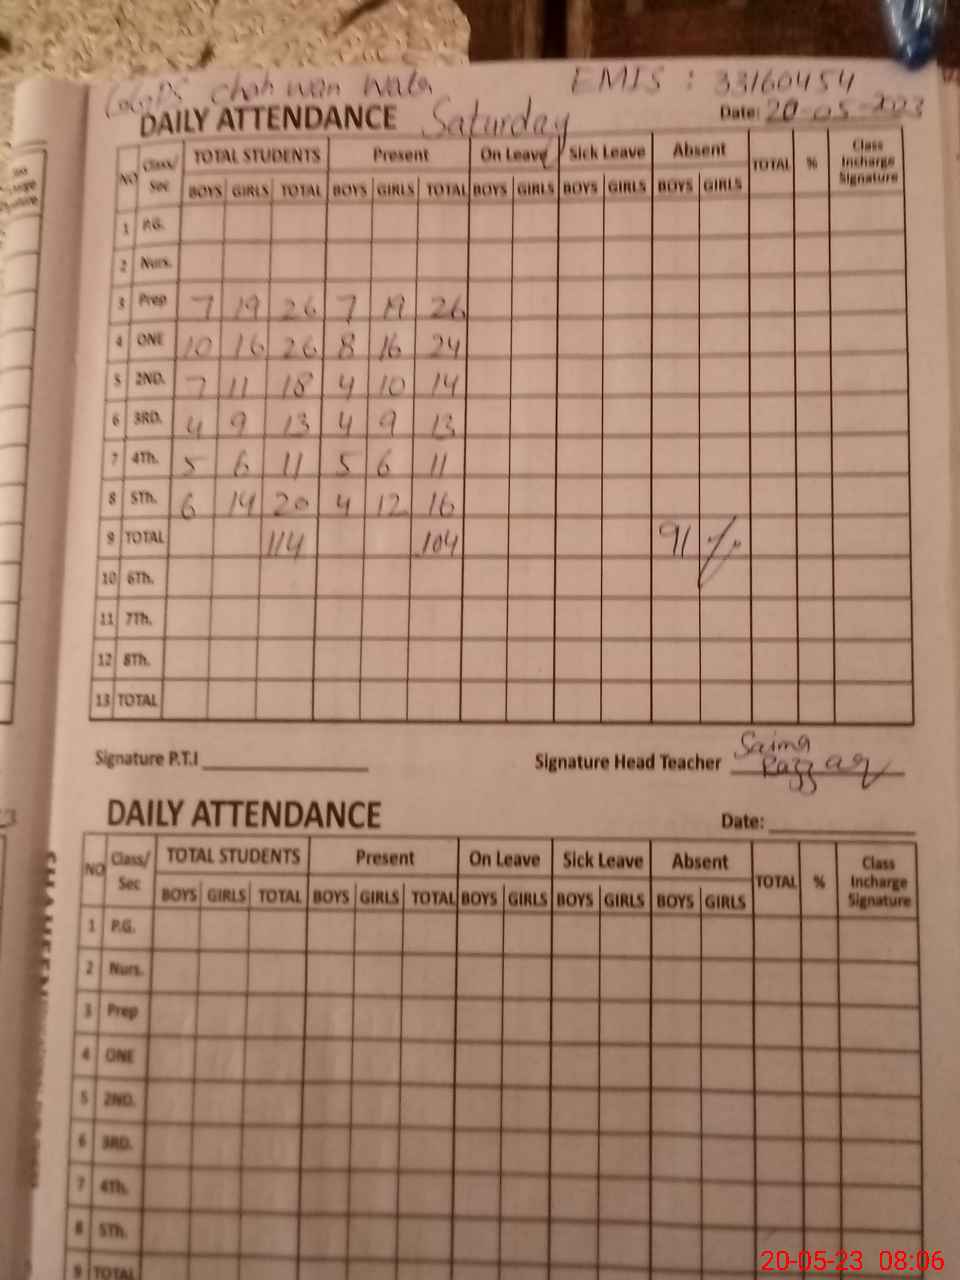 chah wan wala EMIS : 33160454
DAILY ATTENDANCE Saturday Date: 20-05-2023
NO Class/ Sec TOTAL STUDENTS Present On Leave Sick Leave Absent TOTAL % Class Incharge Signature
BOYS GIRLS TOTAL BOYS GIRLS TOTAL BOYS GIRLS BOYS GIRLS BOYS GIRLS
1 P.G.
2 Nurs.
3 Prep 7 19 26 7 19 26
4 ONE 10 16 26 8 16 24
5 2ND. 7 11 18 4 10 14
6 3RD. 4 9 13 4 9 13
7 4Th. 5 6 11 5 6 11
8 5Th. 6 14 20 4 12 16
9 TOTAL 114 104 91 %
10 6Th.
11 7Th.
12 8Th.
13 TOTAL
Signature P.T.I Signature Head Teacher Saima Razzaq
DAILY ATTENDANCE Date:
NO Class/ Sec TOTAL STUDENTS Present On Leave Sick Leave Absent TOTAL % Class Incharge Signature
BOYS GIRLS TOTAL BOYS GIRLS TOTAL BOYS GIRLS BOYS GIRLS BOYS GIRLS
1 P.G.
2 Nurs.
3 Prep
4 ONE
5 2ND.
6 3RD.
7 4Th.
8 5Th.
9 TOTAL
20-05-23 08:06